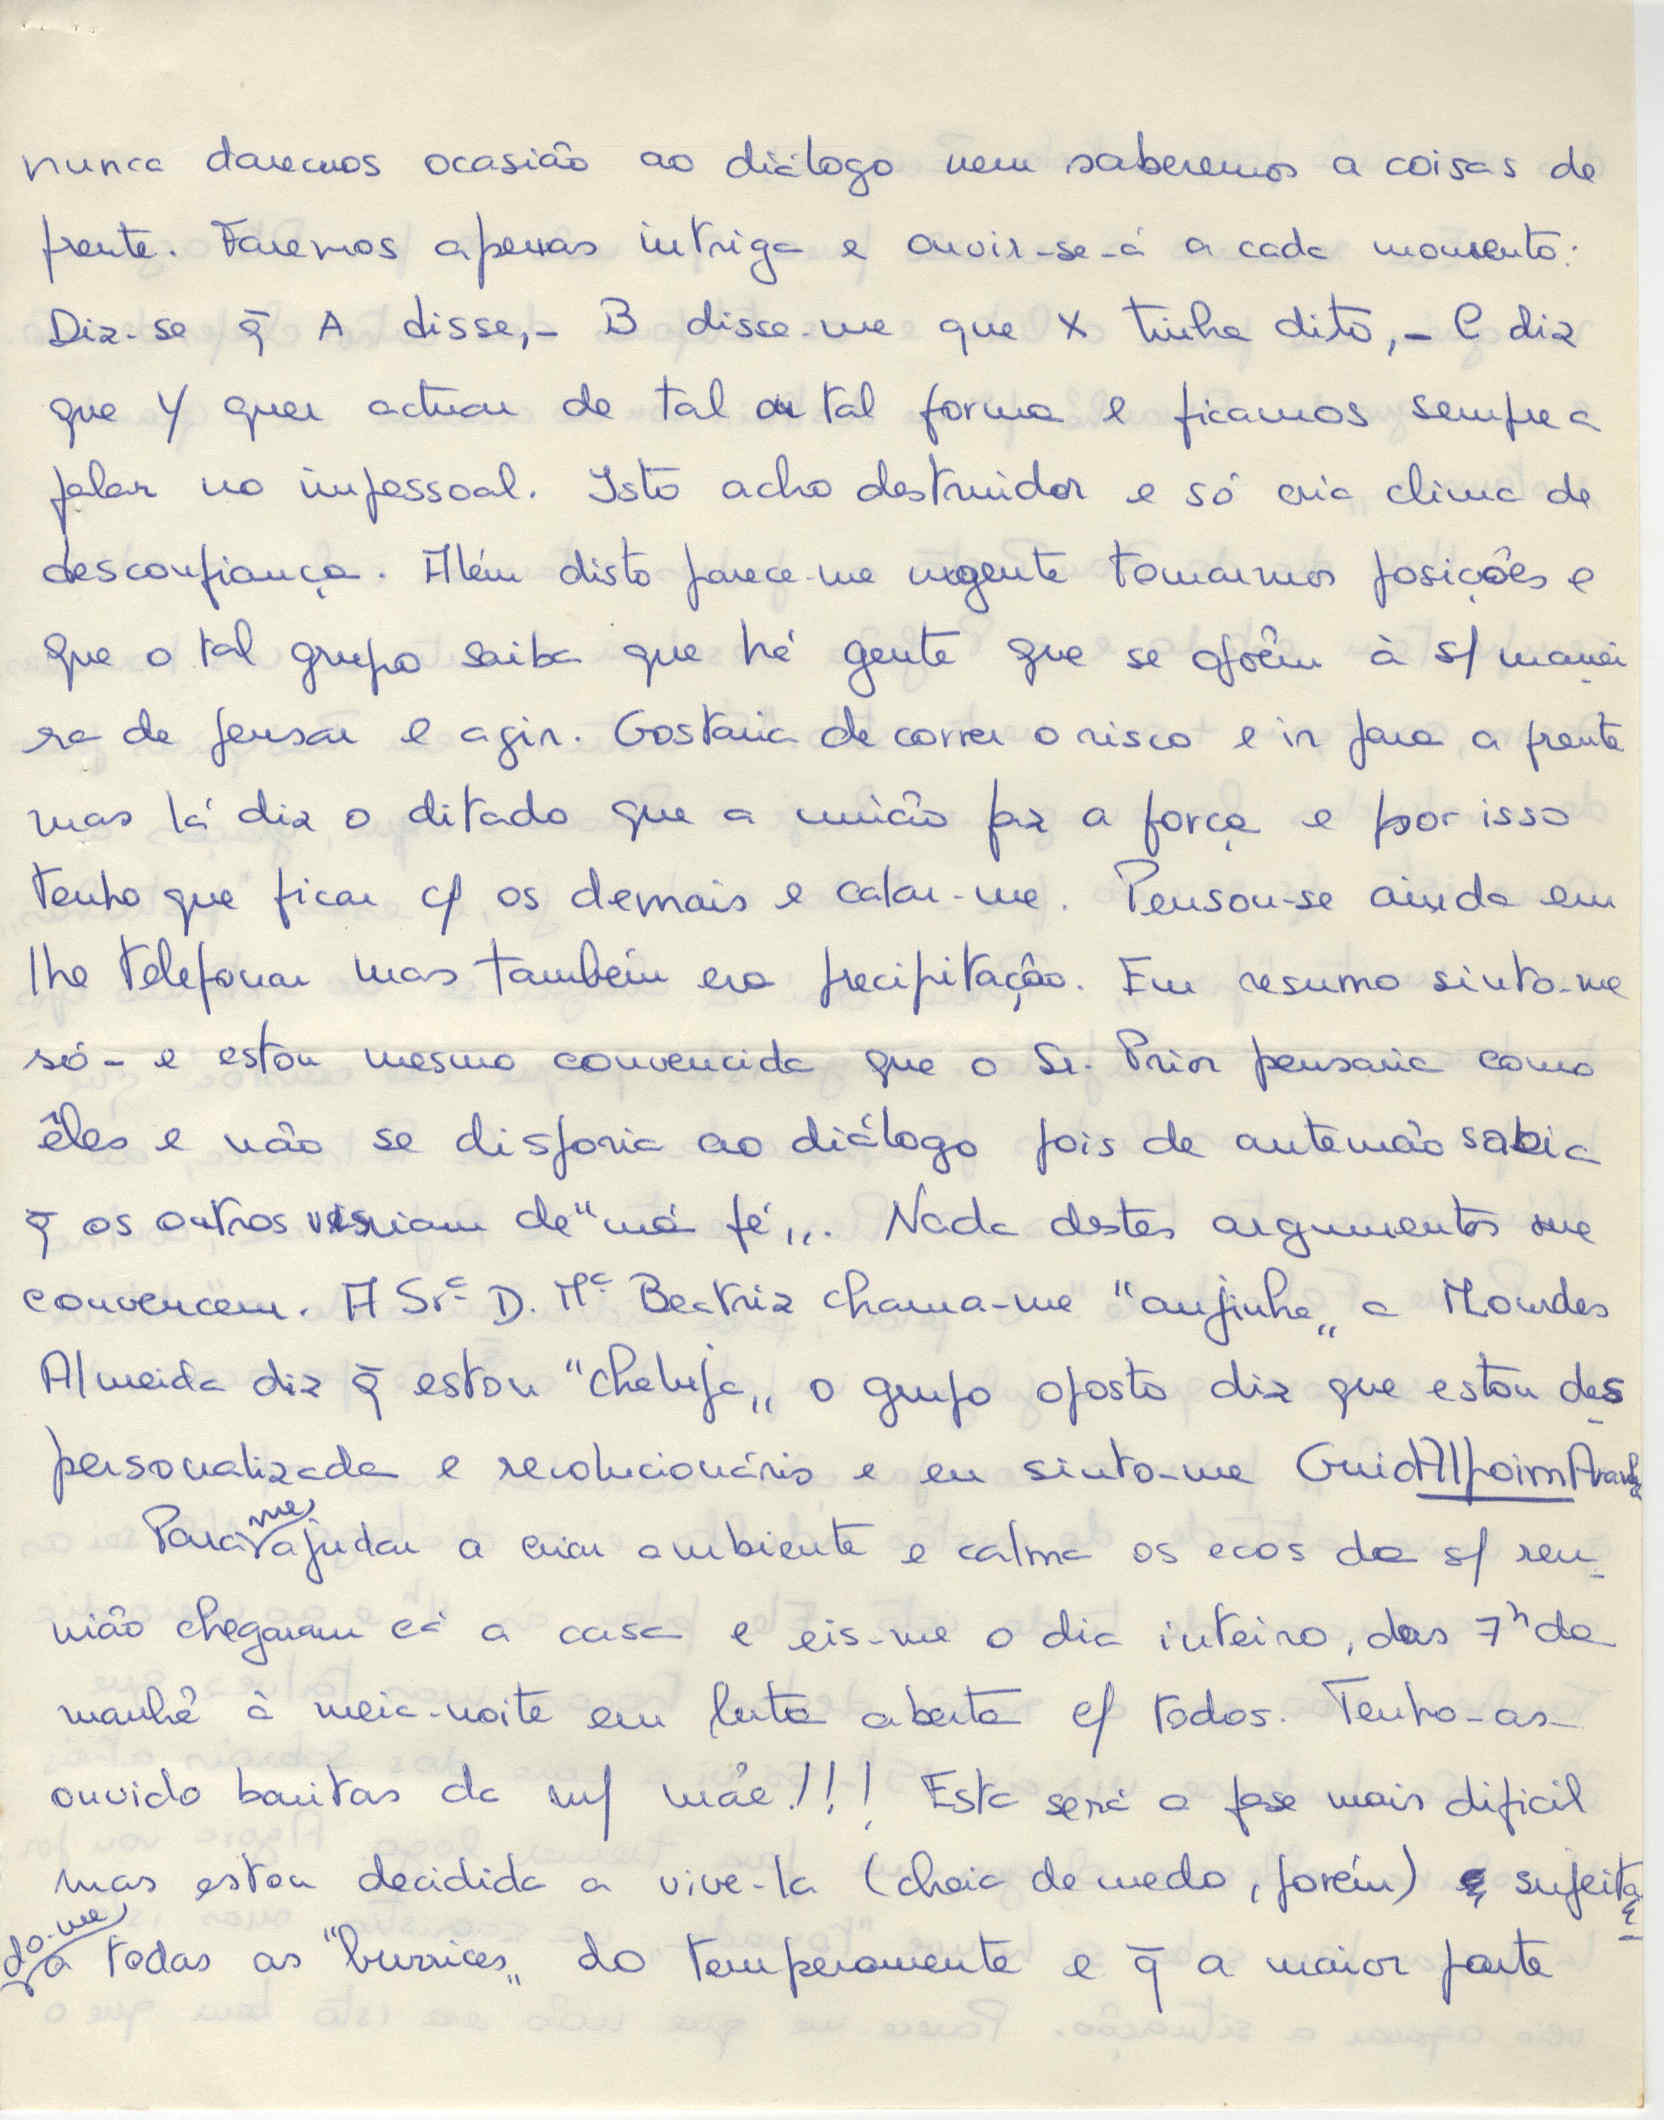 nunca daremos ocasião ao diálogo nem saberemos a coisas de
frente. Faremos apenas intriga e ouvir-se-á a cada momento:
Diz-se q̄ A disse,- B disse-me que X tinha dito,- C diz
que Y quer actuar de tal ou tal forma e ficamos sempre a
falar no impessoal. Isto acho destruidor e só cria clima de
desconfiança. Além disto parece-me urgente tomarmos posições e
que o tal grupo saiba que há gente que se opõem à s/ manei
ra de pensar e agir. Gostaria de correr o risco e ir para a frente
mas lá diz o ditado que a união faz a força e por isso
tenho que ficar c/ os demais e calar-me. Pensou-se ainda em
lhe telefonar mas também era precipitação. Em resumo sinto-me
só - e estou mesmo convencida que o Sr. Prior pensaria como
êles e não se disporia ao diálogo pois de antemão sabia
q̄ os outros viriam de "má fé,,. Nada destes argumentos me
convencem. A Srª D. Mª Beatriz chama-me "anjinha,, a Mourdes
Almeida diz q̄ estou "cheluja,, o grupo oposto diz que estou des
personalizada e revolucionária e eu sinto-me GuidAlpoim
Para me ajudar a criar ambiente e calma os ecos da s/ reu
nião chegaram cá a casa e eis-me o dia inteiro, das 7h da
manhã à meia-noite em luta aberta c/ todos. Tenho-as-
ouvido bonitas da m/ mãe!!! Esta será a fase mais dificil
mas estou decidida a vive-la (cheia de medo, porém) sujeita
do-me a todas as "burrices,, do temperamento e q̄ a maior parte